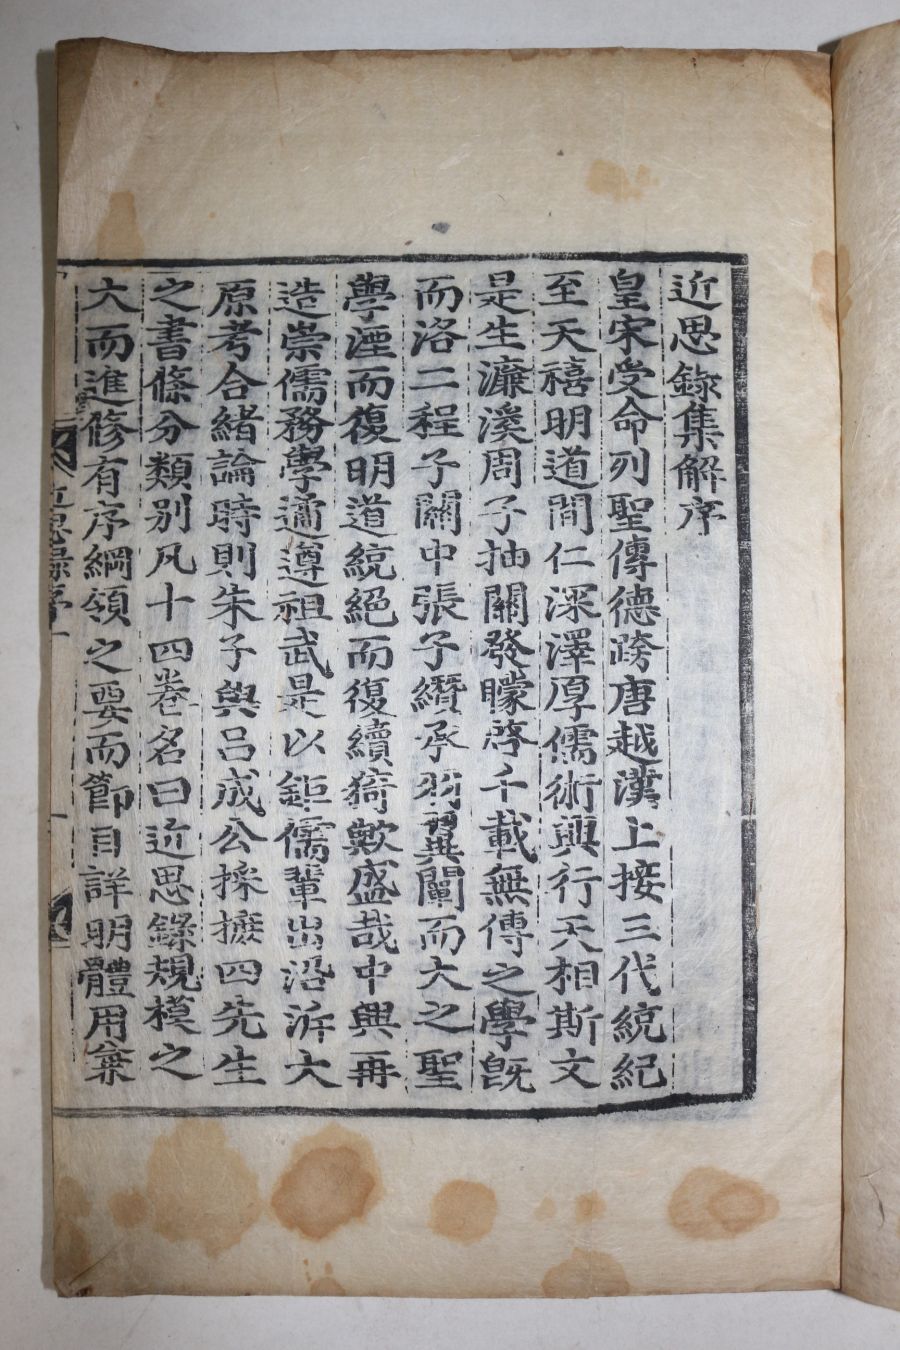 近思錄集解序
皇宋受命列聖傳德跨唐越漢上接三代統紀
至天禧明道間仁深澤厚儒術興行天相斯文
是生濂溪周子抽關發矇啓千載無傳之學旣
而洛二程子關中張子纘承羽翼闡而大之聖
學湮而復明道統絕而復續猗歟盛哉中興再
造崇儒務學遹遵祖武是以鉅儒輩出沿泝大
原考合緖論時則朱子與呂成公採摭四先生
之書條分類別凡十四卷名曰近思錄規模之
大而進修有序綱領之要而節目詳明體用兼
近思錄序 一